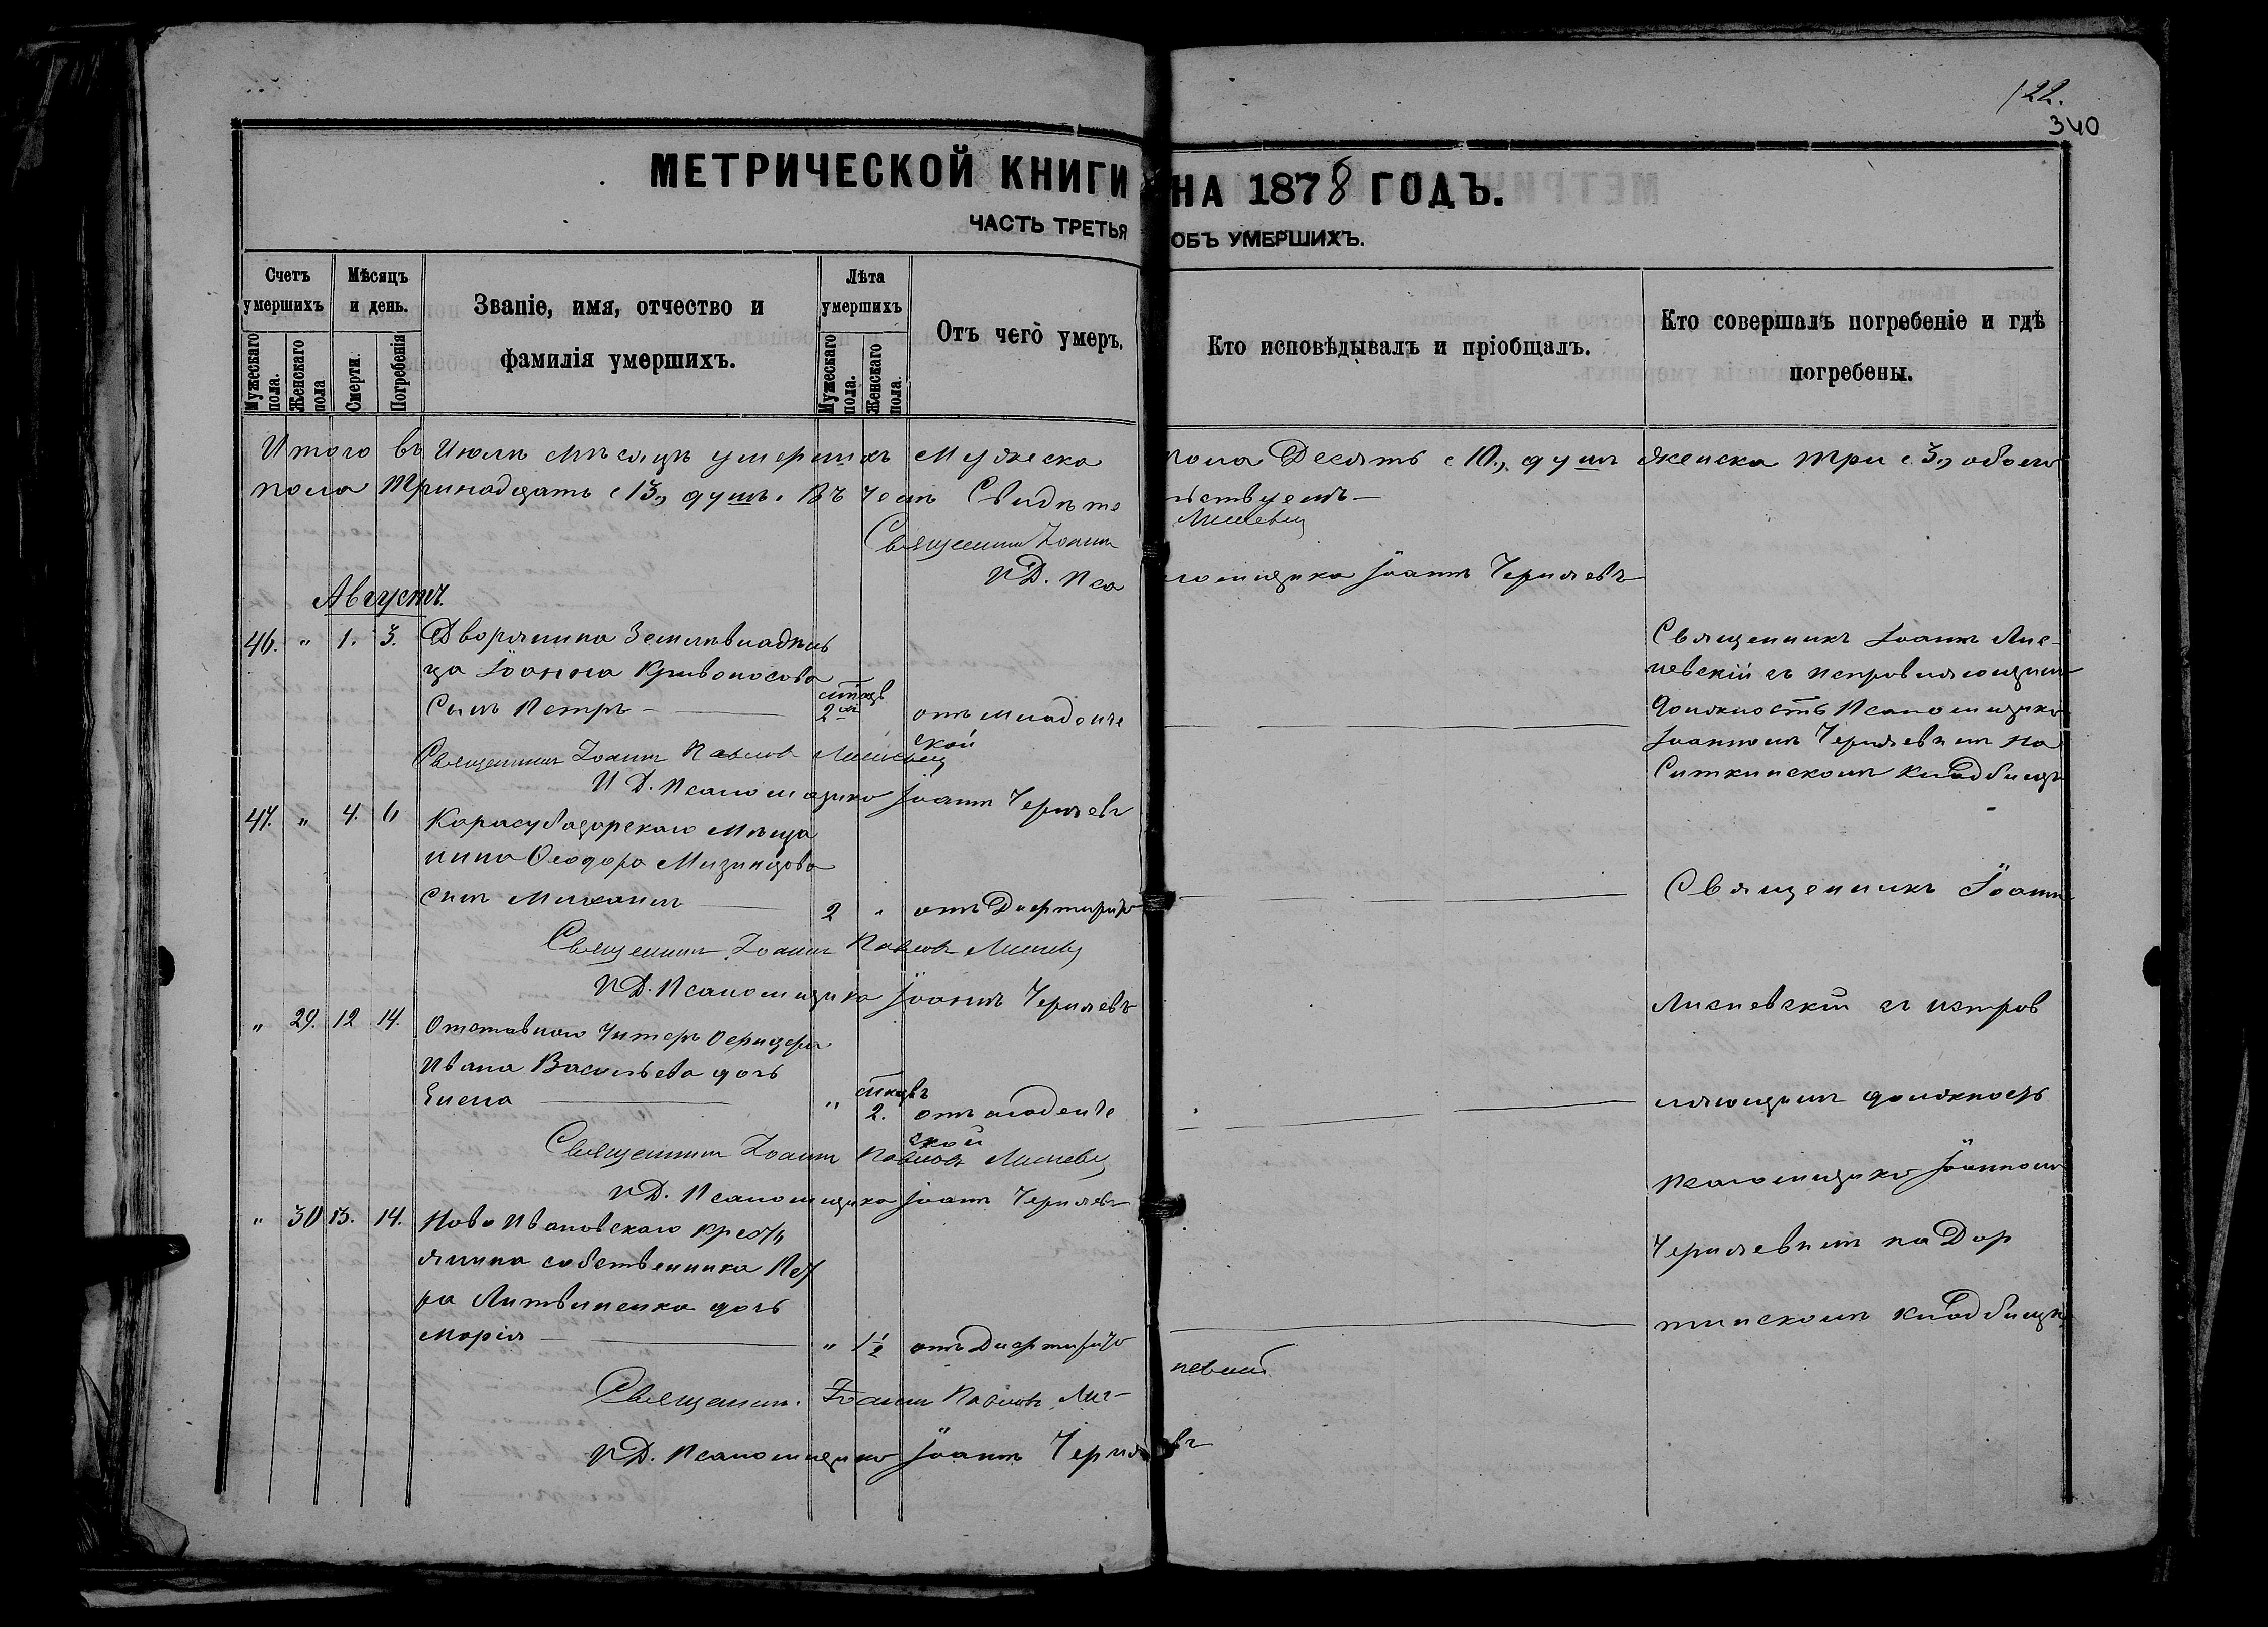 122.
340
МЕТРИЧЕСКОЙ КНИГИ НА 1878 ГОДЪ.
ЧАСТЬ ТРЕТЬЯ ОБЪ УМЕРШИХЪ.
Счетъ умершихъ
Мужескаго пола.
Женскаго пола
Мѣсяцъ и день.
Смерти.
Погребенія
Званіе, имя, отчество и
фамилія умершихъ.
Лѣта умершихъ
Мужескаго пола.
Женскаго пола.
Отъ чего умеръ.
Кто исповѣдывалъ и пріобщалъ.
Кто совершалъ погребеніе и гдѣ
погребены.
Итого въ Июлѣ мѣсяцѣ умершихъ Мужеска пола Десять (10), душъ женска три (3), обоего
пола Тринадцать (13), душъ. Въ чемъ Свидѣтельствуемъ
Священникъ Іоаннъ
И Д. Псаломщика Іоаннъ Черняевъ
Августъ.
46. " 1. 3. Дворянина Землевладѣль
ца Іоанна Кривоносова
Сынъ Петръ 2 отъ младенче
ской
Священникъ Іоаннъ Павловъ
И Д. Псаломщика Іоаннъ Черняевъ
Священникъ Іоаннъ Лис-
невскій съ исправляющимъ
должность Псаломщика
Іоанномъ Черняевымъ на
Кладбищѣ
47. " 4. 6 Карасубазарскаго Мѣща
нина Ѳеодора
сынъ Михаилъ 2 " отъ Дифтерита
Священникъ Іоаннъ Павловъ
И Д. Псаломщика Іоаннъ Черняевъ
Священникъ Іоаннъ
" 29. 12 14. Отставного Унтеръ Офицера
Ивана Васильева дочь
Елена " 2. отъ младенче
ской
Священникъ Іоаннъ Павловъ
И Д. Псаломщика Іоаннъ Черняевъ
Лисневскій съ исправ
ляющимъ должность
Псаломщика Іоанномъ
" 30 13. 14. Ново Ивановскаго крестъ
янина собственника Пет
ра Литвиненка дочь
Марія " 1½ отъ Дифтерита
Священник. Іоаннъ Павловъ Лис-
невскій
И Д. Псаломщика Іоаннъ Черняевъ
Черняевымъ на
Кладбищѣ